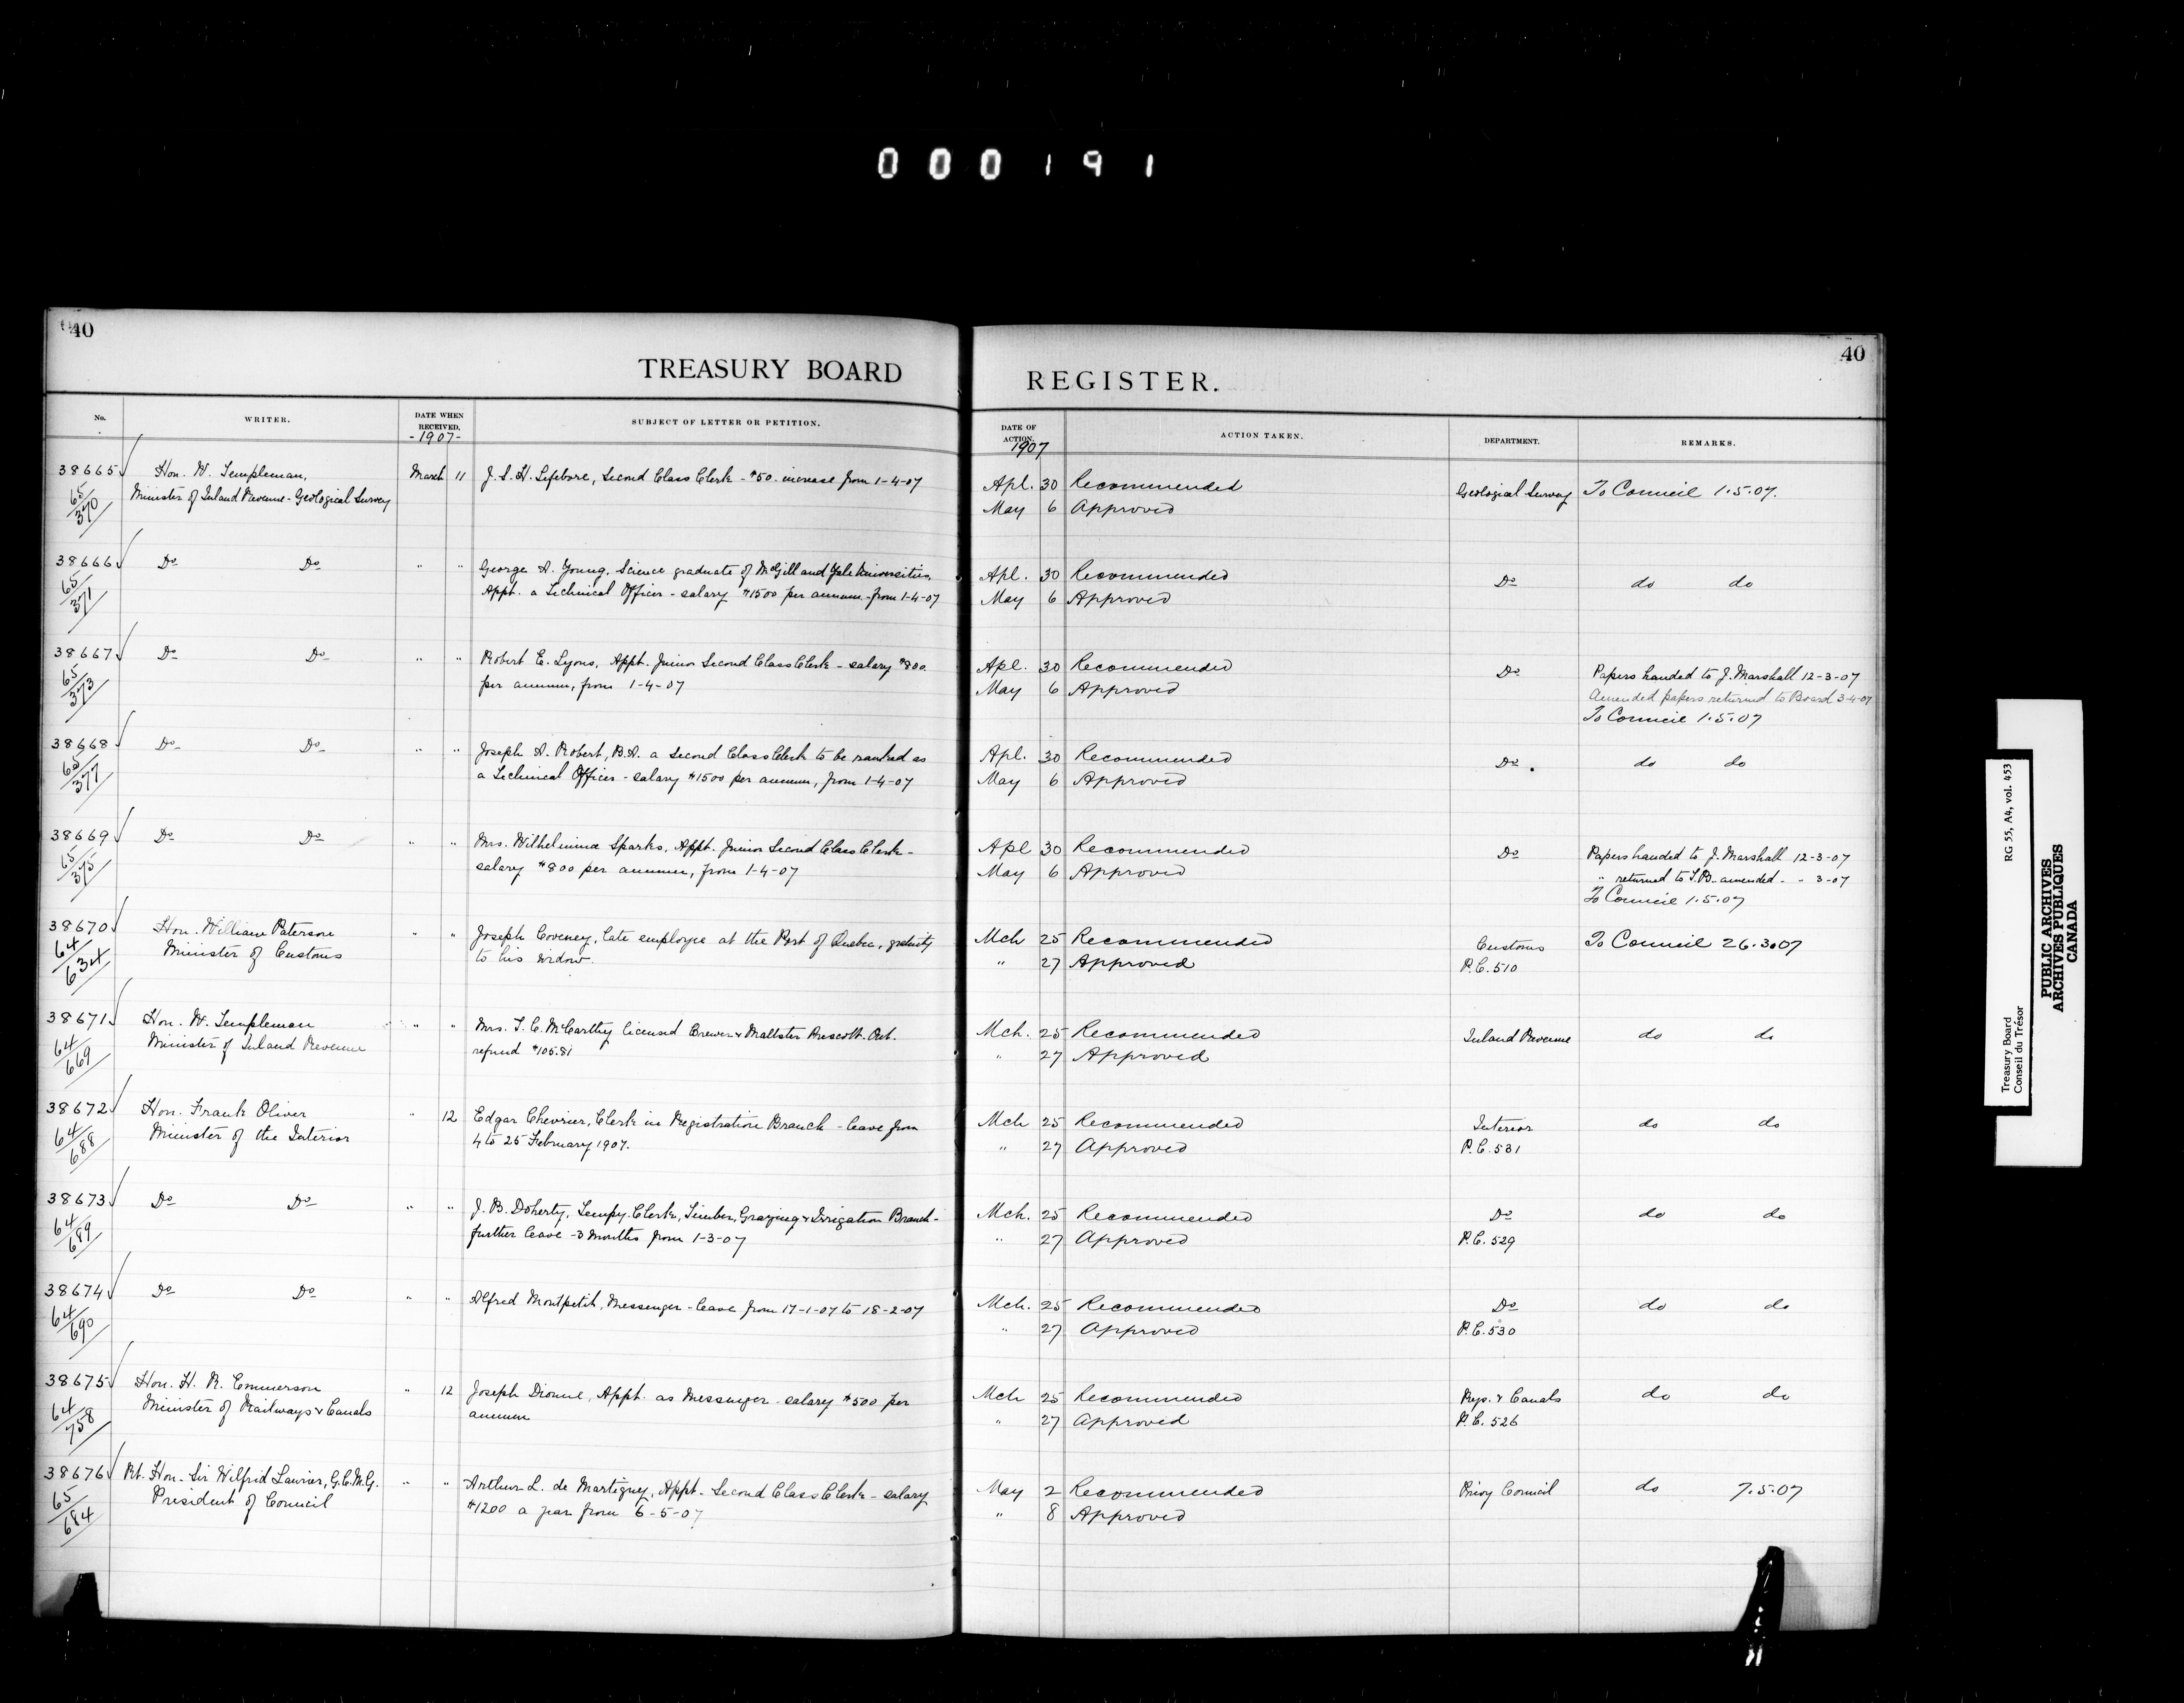 000191
40
TREASURY BOARD
REGISTER.
40
No.
WRITER.
DATE WHEN RECEIVED.
-1907-
SUBJECT OF LETTER OR PETITION.
DATE OF ACTION.
1907
ACTION TAKEN.
DEPARTMENT.
REMARKS.
38665 Hon. W. Templeman, March 11 J. S. H. Lefebvre, Second Class Clerk - $50. increase from 1-4-07 Apl. 30 Recommended Geological Survey To Council 1.5.07.
65/370 Minister of Inland Revenue - Geological Survey May 6 Approved
38666 Do Do " " George A. Young, Science graduate of McGill and Yale Universities, Apl. 30 Recommended Do do do
65/371 Appt. a Technical Officer - salary $1500 per annum - from 1-4-07 May 6 Approved
38667 Do Do " " Robert E. Lyons, Appt. Junior Second Class Clerk - salary $800. Apl. 30 Recommended Do Papers handed to J. Marshall 12-3-07
65/373 per annum, from 1-4-07 May 6 Approved Amended papers returned to Board 3-4-07
To Council 1.5.07
38668 Do Do " " Joseph A. Robert, B.A. a Second Class Clerk to be ranked as Apl. 30 Recommended Do. do do
65/377 a Technical Officer - salary $1500 per annum, from 1-4-07 May 6 Approved
38669 Do Do " " Mrs. Wilhelmina Sparks, Appt. Junior Second Class Clerk - Apl 30 Recommended Do Papers handed to J. Marshall 12-3-07
65/375 salary $800 per annum, from 1-4-07 May 6 Approved " returned to T.B. amended - - 3-07
To Council 1.5.07
38670 Hon. William Paterson " " Joseph Coveney, late employee at the Port of Quebec, gratuity Mch 25 Recommended Customs To Council 26.3.07
64/634 Minister of Customs to his widow. " 27 Approved P.C. 510
38671 Hon. W. Templeman " " Mrs. T. C. McCarthy licensed Brewer & Maltster Prescott. Ont. Mch. 25 Recommended Inland Revenue do do
64/669 Minister of Inland Revenue refund $105.81 " 27 Approved
38672 Hon. Frank Oliver " 12 Edgar Chevrier, Clerk in Registration Branch - leave from Mch 25 Recommended Interior do do
64/688 Minister of the Interior 4 to 25 February 1907. " 27 Approved P.C. 531
38673 Do Do " " J. B. Doherty, Tempy. Clerk, Timber, Grazing & Irrigation Branch - Mch. 25 Recommended Do do do
64/689 further leave - 3 months from 1-3-07 " 27 Approved P.C. 529
38674 Do Do " " Alfred Montpetit, Messenger - leave from 17-1-07 to 18-2-07 Mch. 25 Recommended Do do do
64/690 " 27 Approved P.C. 530
38675 Hon. H. R. Emmerson " 12 Joseph Dionne, Appt. as Messenger - salary $500 per Mch 25 Recommended Rys. & Canals do do
64/758 Minister of Railways & Canals annum " 27 Approved P.C. 526
38676 Rt. Hon. Sir Wilfrid Laurier, G.C.M.G. " " Arthur L. de Martigny, Appt. Second Class Clerk - salary May 2 Recommended Privy Council do 7.5.07
65/684 President of Council $1200 a year from 6-5-07 " 8 Approved
Treasury Board RG 55, A4, vol. 453
Conseil du Trésor
PUBLIC ARCHIVES
ARCHIVES PUBLIQUES
CANADA